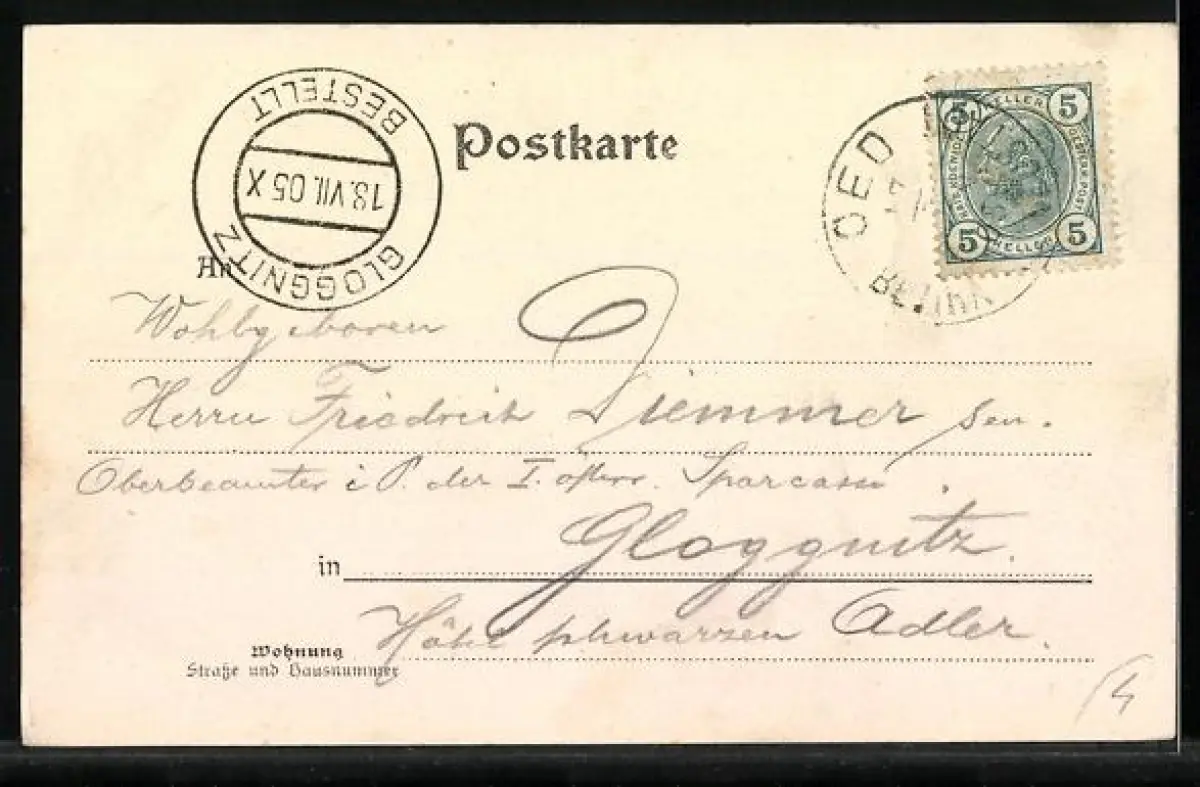 Postkarte
BESTELLT
18.VII.05 X
GLOGGNITZ
OED
5 HELLER 5
5 HELLER 5
An
Wohlgeboren
Herrn Friedrich Diemmer sen.
Oberbeamter i P. der I. österr. Sparcassa.
in Gloggnitz.
Hôtel schwarzen Adler.
Wohnung
Straße und Hausnummer